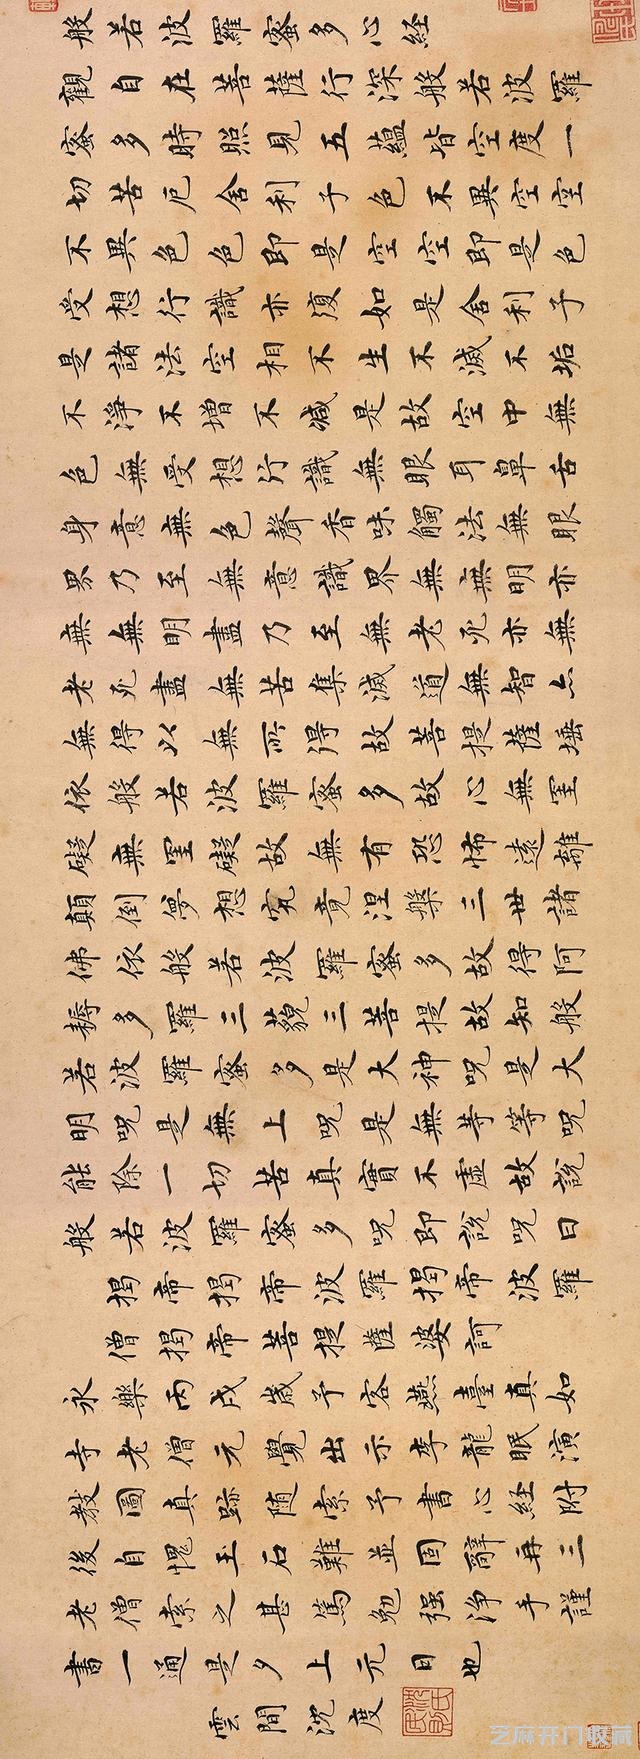 般若波羅蜜多心経
觀自在菩薩行深般若波羅
蜜多時照見五蘊皆空度一
切苦厄舍利子色不異空空
不異色色即是空空即是色
受想行識亦復如是舍利子
是諸法空相不生不滅不垢
不淨不增不減是故空中無
色無受想行識無眼耳鼻舌
身意無色聲香味觸法無眼
界乃至無意識界無無明亦
無無明盡乃至無老死亦無
老死盡無苦集滅道無智亦
無得以無所得故菩提薩埵
依般若波羅蜜多故心無罣
礙無罣礙故無有恐怖遠離
顛倒夢想究竟涅槃三世諸
佛依般若波羅蜜多故得阿
耨多羅三藐三菩提故知般
若波羅蜜多是大神呪是大
明呪是無上呪是無等等呪
能除一切苦真實不虛故說
般若波羅蜜多呪即說呪曰
揭帝揭帝波羅揭帝波羅
僧揭帝菩提薩婆訶
永樂丙戌歲予客燕臺真如
寺老僧元覺出示李龍眠演
教圖真跡随索予書心経附
後自愧玉石難並固辭再三
老僧索之甚篤勉强淨手謹
書一通是夕上元日也
雲間沈度
芝麻开门收藏